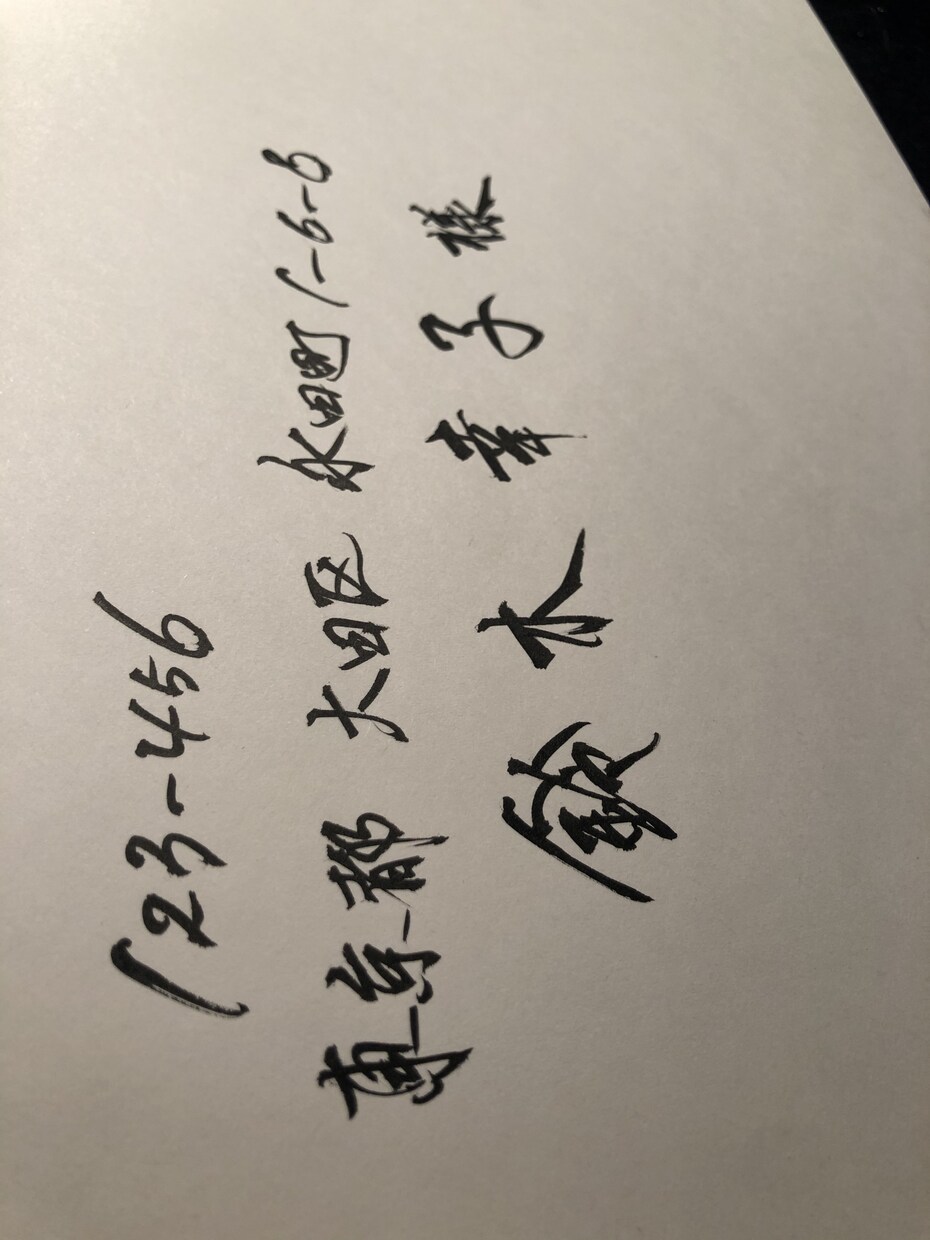 123-456
東京都 大田区 永田町 1-6-8
鈴木 幸子 様